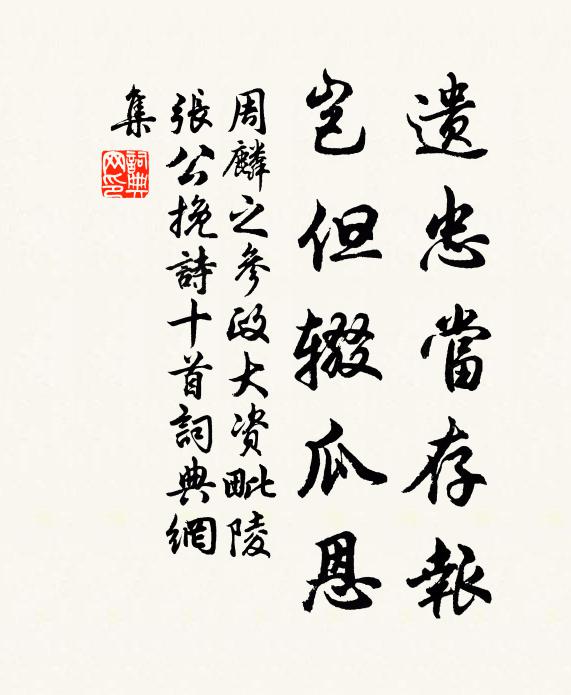 遗忠當存報
岂但辍瓜恩
周麟之參政大资毗陵
張公挽詩十首詞典網
集
詞典
网印